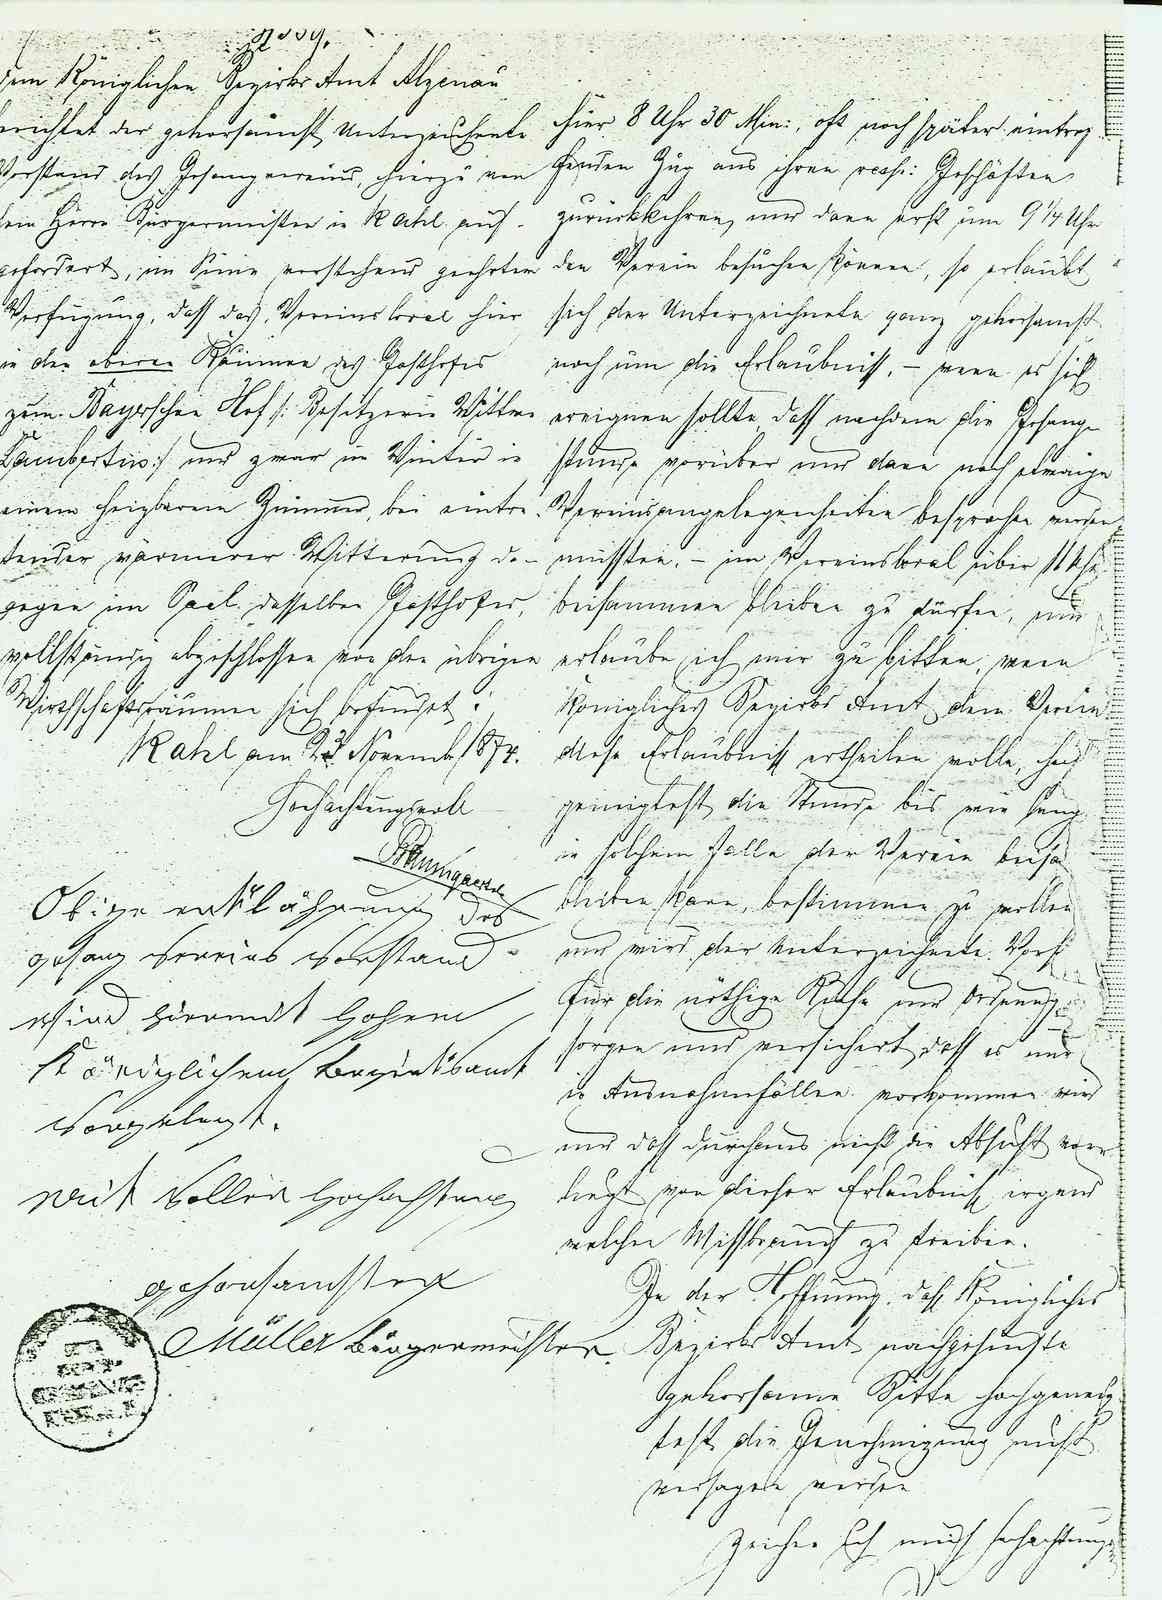 dem Königlichen Bezirks Amt Alzenau
berichtet der gehorsamst Unterzeichnete
Vorstand des Gesangvereins, hierzu von
dem Herrn Bürgermeister in Kahl auf-
gefordert, im Sinne vorstehend geehrter
Verfügung, dass das Vereinslocal hier
in den oberen Räumen des Gasthofes
zum Bayerschen Hof /: Besitzerin Wittwe
Lambertus :/ und zwar im Winter in
einem heizbaren Zimmer, bei eintre-
tender wärmerer Witterung da-
gegen im Saal desselben Gasthofes,
vollständig abgeschlossen von den übrigen
Wirthschaftsräumen sich befindet.
Kahl am 23 Novemb. 1874.
Hochachtungsvoll
Baumgaertel
Obige erklährung des
gesang vereins vorstand
wird hiermit hohem
königlichem bezirksamt
vorgelegt.
mit voller hochachtung
gehorsamster
Müller bürgermeister.
hier 8 Uhr 30 Min:, oft noch später eintref
fenden Zug aus ihren resp: Geschäften
zurückkehren, und dann erst um 9 1/4 Uhr
den Verein besuchen können, so erlaubt
sich der Unterzeichnete ganz gehorsamst
noch um die Erlaubniss, – wenn es sich
ereignen sollte, dass nachdem die Gesang-
stunde vorüber und dann noch etwaige
Vereinsangelegenheiten besprochen werden
müssten, – im Vereinslocal über 11 Uhr
beisammen bleiben zu dürfen, und
erlaube ich mir zu bitten, wenn
Königliches Bezirks Amt dem Verein
diese Erlaubniss ertheilen wolle,
geneigtest die Stunde bis wie lang
in solchem Falle der Verein beisa
bleiben kann, bestimmen zu wollen
und wird der Unterzeichnete Vorst
für die nöthige Ruhe und Ordnung
sorgen und versichert, dass es nur
in Ausnahmfällen vorkommen wird
und dass durchaus nicht die Absicht vor
liegt von dieser Erlaubniss irgend
welchen Missbrauch zu treiben.
In der Hoffnung, dass Königliches
Bezirks Amt nachgesuchte
gehorsame Bitte hochgeneig
test die Genehmigung nicht
versagen werden
zeichne ich mich hochachtungs